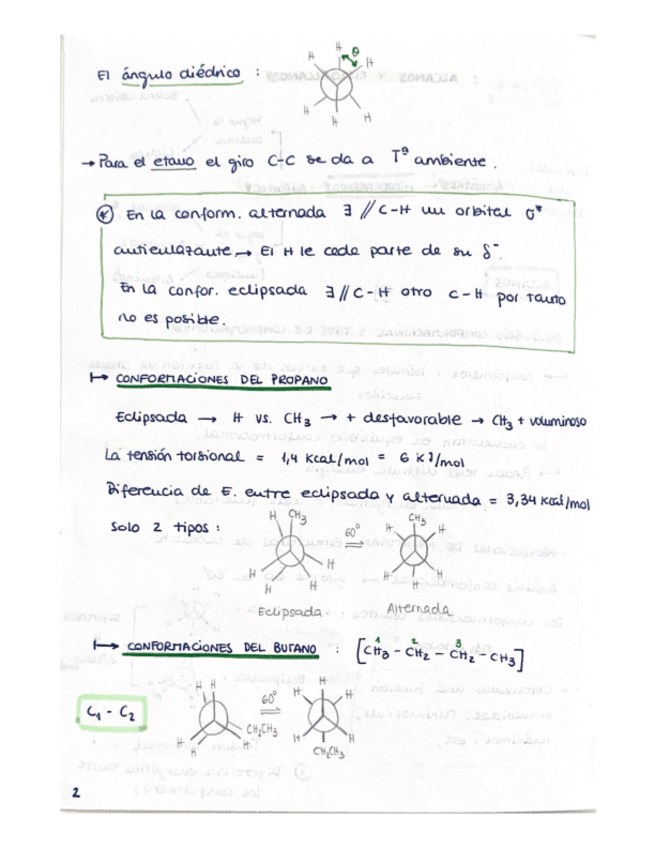 El ángulo diédrico :
H H θ H
H H H
→ Para el etano el giro C-C se da a Tª ambiente.
* En la conform. alternada ∃ // C-H un orbital σ*
antienlazante → El H le cede parte de su δ⁻.
En la confor. eclipsada ∃ // C-H otro C-H por tanto
no es posible.
↦ CONFORMACIONES DEL PROPANO
Eclipsada → H vs. CH3 → + desfavorable → CH3 + voluminoso
La tensión torsional = 1,4 Kcal/mol = 6 KJ/mol
Diferencia de E. entre eclipsada y alternada = 3,34 Kcal/mol
Solo 2 tipos :
H CH3 H H H H
60º
CH3 H H H H H
Eclipsada Alternada
↦ CONFORMACIONES DEL BUTANO : [CH3 - CH2 - CH2 - CH3]
1 2 3
C1 - C2
H H H H CH2CH3
60º
H H H H H CH2CH3
2